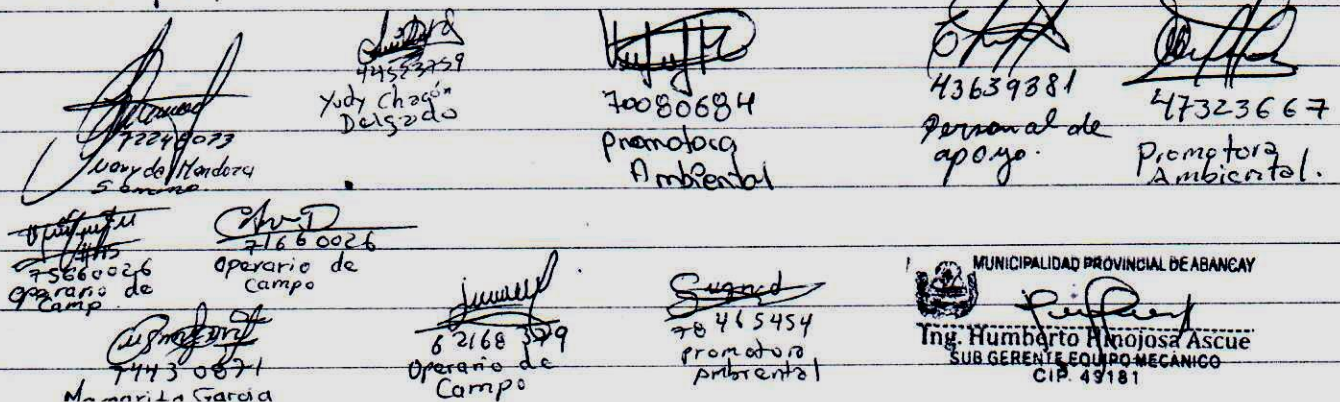 44523759
Yudy Chacón
Delgado
70080684
promotora
Ambiental
43639381
Personal de
apoyo.
47323667
Promotora
Ambiental.
Mendoza
75660026
operario de
Camp.
71660026
Operario de
Campo
Margarita Garcia
62168379
Operario de
Campo
78465454
promotora
Ambiental
MUNICIPALIDAD PROVINCIAL DE ABANCAY
Ing. Humberto Hinojosa Ascue
SUB GERENTE EQUIPO MECÁNICO
CIP. 49181